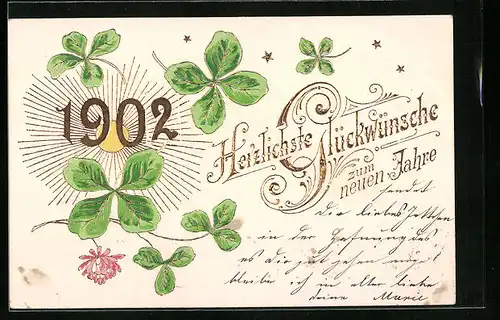 1902
Herzlichste Glückwünsche
zum
neuen Jahre
sendet
Dir liebes
in der Hoffnung das
es Dir gut gehen möge
bleibe ich in alter Liebe
deine Marie